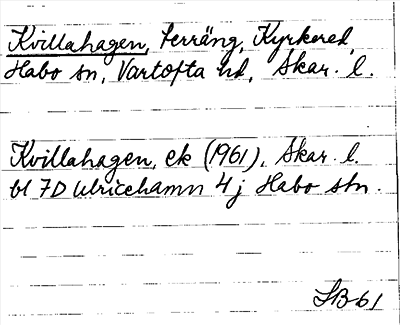 Kvillahagen, terräng, Kyrkered,
Habo sn, Vartofta hd, Skar. l.
Kvillahagen, ek (1961), Skar. l.
bl 7D Ulricehamn 4j Habo stn.
SB 61